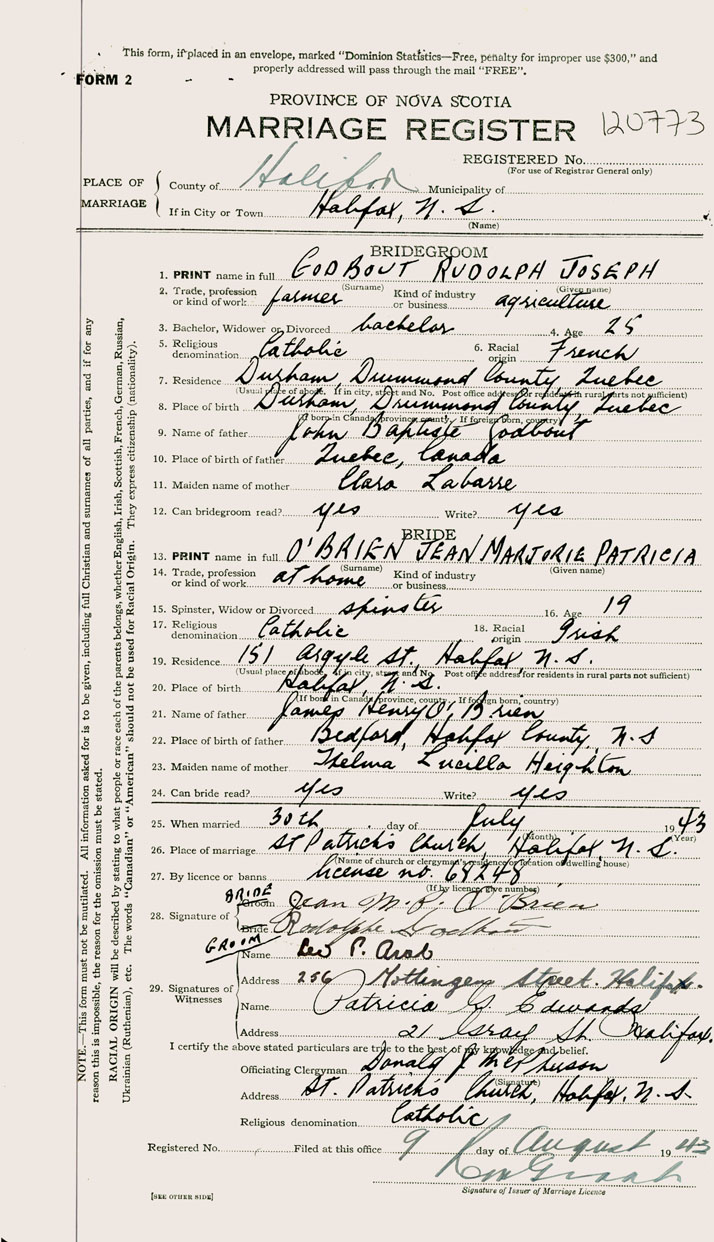 This form, if placed in an envelope, marked "Dominion Statistics—Free, penalty for improper use $300," and
properly addressed will pass through the mail "FREE".
FORM 2
PROVINCE OF NOVA SCOTIA
MARRIAGE REGISTER 120773
REGISTERED No.
(For use of Registrar General only)
PLACE OF MARRIAGE
County of Halifax Municipality of
If in City or Town Halifax, N. S.
(Name)
BRIDEGROOM
1. PRINT name in full GODBOUT RUDOLPH JOSEPH
(Surname) (Given name)
2. Trade, profession or kind of work farmer Kind of industry or business agriculture
3. Bachelor, Widower or Divorced bachelor 4. Age 25
5. Religious denomination Catholic 6. Racial origin French
7. Residence Durham, Drummond County, Quebec
(Usual place of abode. If in city, street and No. Post office address for residents in rural parts not sufficient)
8. Place of birth Durham, Drummond County, Quebec
(If born in Canada, province, county. If foreign born, country)
9. Name of father John Baptiste Godbout
10. Place of birth of father Quebec, Canada
11. Maiden name of mother Clara Labarre
12. Can bridegroom read? yes Write? yes
BRIDE
13. PRINT name in full O'BRIEN JEAN MARJORIE PATRICIA
(Surname) (Given name)
14. Trade, profession or kind of work at home Kind of industry or business
15. Spinster, Widow or Divorced spinster 16. Age 19
17. Religious denomination Catholic 18. Racial origin Irish
19. Residence 151 Argyle St., Halifax, N. S.
(Usual place of abode. If in city, street and No. Post office address for residents in rural parts not sufficient)
20. Place of birth Halifax, N. S.
(If born in Canada, province, county. If foreign born, country)
21. Name of father James Henry O'Brien
22. Place of birth of father Bedford, Halifax County, N. S
23. Maiden name of mother Thelma Lucilla Heighton
24. Can bride read? yes Write? yes
25. When married 30th day of July 1943
(Month) (Year)
26. Place of marriage St Patrick's Church, Halifax, N. S.
(Name of church or clergyman's residence or location of dwelling house)
27. By licence or banns license no. 68248
(If by licence, give number)
28. Signature of
BRIDE Groom Jean M. P. O'Brien
GROOM Bride Rodolphe Godbout
29. Signatures of Witnesses
Name Rev P. Arab
Address 256 Gottingen Street. Halifax.
Name Patricia G. Edwards
Address 21 Gray St. Halifax.
I certify the above stated particulars are true to the best of my knowledge and belief.
Officiating Clergyman Donald J McPherson
(Signature)
Address St. Patrick's Church, Halifax, N. S.
Religious denomination Catholic
Registered No. Filed at this office 9 day of August 1943
Signature of Issuer of Marriage Licence
[SEE OTHER SIDE]
NOTE.—This form must not be mutilated. All information asked for is to be given, including full Christian and surnames of all parties, and if for any
reason this is impossible, the reason for the omission must be stated.
RACIAL ORIGIN will be described by stating to what people or race each of the parents belongs, whether English, Irish, Scottish, French, German, Russian,
Ukrainian (Ruthenian), etc. The words "Canadian" or "American" should not be used for Racial Origin. They express citizenship (nationality).